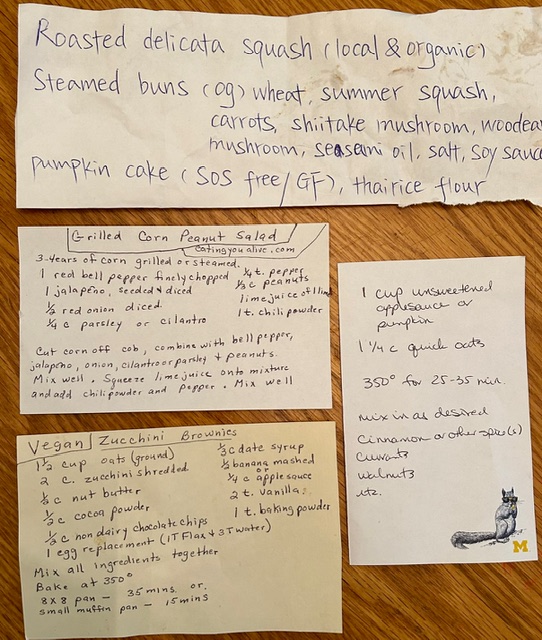 Roasted delicata squash (local & organic)
Steamed buns (og) wheat, summer squash,
carrots, shiitake mushroom, woodear
mushroom, seasami oil, salt, soy sauc
pumpkin cake (SOS free/GF), thairice flour
Grilled Corn Peanut Salad
eatingyoualive.com
3-4 ears of corn grilled or steamed.
1 red bell pepper finely chopped
1 jalapeño, seeded & diced
1/2 red onion diced
1/4 c parsley or cilantro
1/4 t. pepper
1/3 c peanuts
lime juice of 1 lime
1 t. chili powder
Cut corn off cob, combine with bell pepper,
jalapeno, onion, cilantro or parsley & peanuts.
Mix well. Squeeze lime juice onto mixture
and add chili powder and pepper. Mix well
1 cup unsweetened
applesauce or
pumpkin
1 1/4 c quick oats
350° for 25-35 min.
mix in as desired
Cinnamon or other spice(s)
currants
walnuts
etc.
M
Vegan Zucchini Brownies
1 1/2 cup oats (ground)
2 c. zucchini shredded
1/2 c nut butter
1/2 c cocoa powder
1/3 c non dairy chocolate chips
1 egg replacement (1T Flax & 3T water)
1/3 c date syrup
1/2 banana mashed
or
1/4 c applesauce
2 t. vanilla
1 t. baking powder
Mix all ingredients together
Bake at 350°
8x8 pan - 35 mins. or
small muffin pan - 15 mins